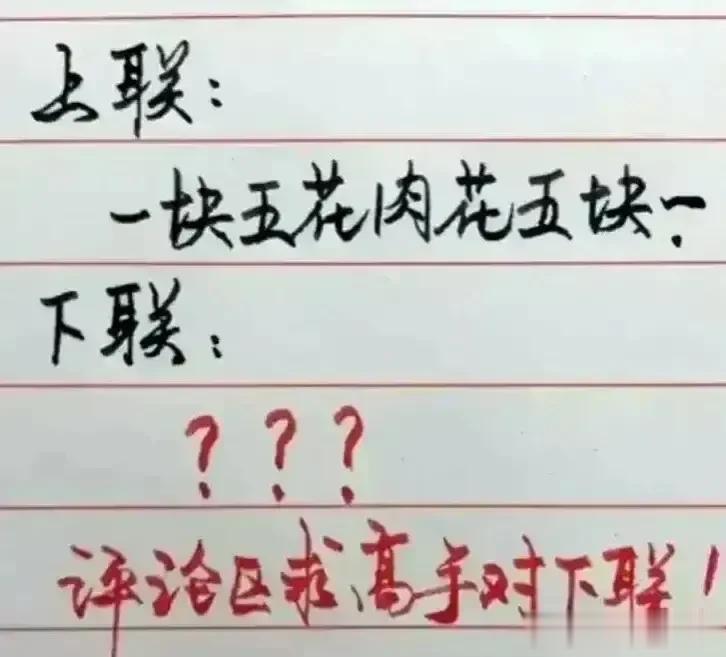 上联：
一块五花肉花五块一．
下联：
？？？
评论区求高手对下联！